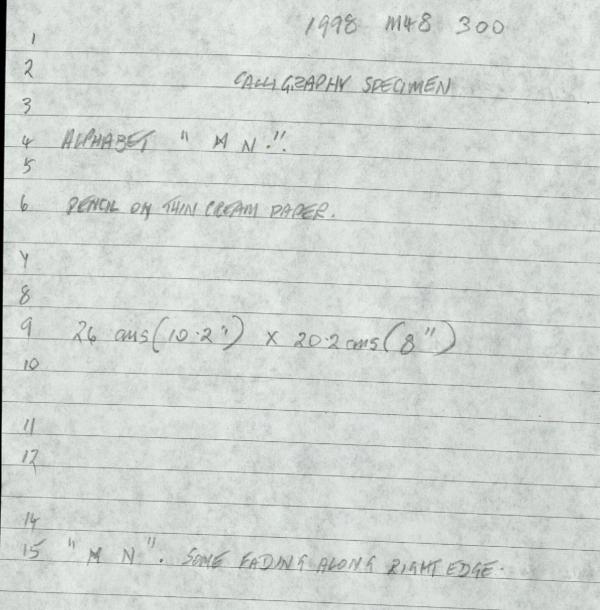 1998 M48 300
1
2 CALLIGRAPHY SPECIMEN
3
4 ALPHABET " M N ."
5
6 PENCIL ON THIN CREAM PAPER.
Y
8
9 26 cms (10.2") x 20.2 cms (8")
10
11
12
14
15 " M N ". SOME FADING ALONG RIGHT EDGE.